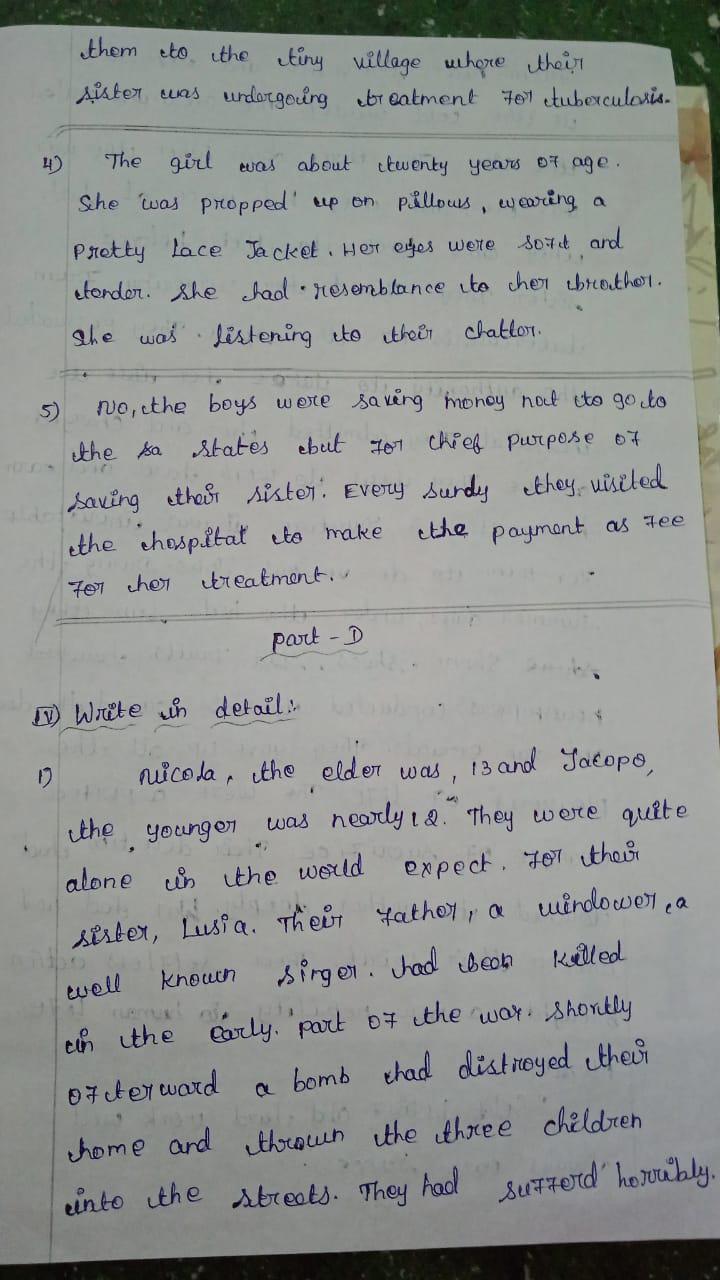 them to the tiny village where their
sister was undergoing treatment for tuberculosis.
4) The girl was about twenty years of age.
She was propped' up on pillows, wearing a
Pretty Lace Jacket. Her eyes were soft and
tender. She had resemblance to her brother.
She was listening to their chatter.
5) No, the boys were saving money not to go to
the sa states but for chief purpose of
saving their sister. Every surdy they visited
the hospital to make the payment as fee
for her treatment.
Part - D
IV) Write in detail:
1) Nicola, the elder was, 13 and Jacopo,
the younger was nearly 12. They were quite
alone in the world expect. For their
sister, Lusia. Their father, a windower, a
well known singer. had been killed
in the early. part of the war. shortly
ofterward a bomb had distroyed their
home and thrown the three children
into the streets. They had sufferd horribly.